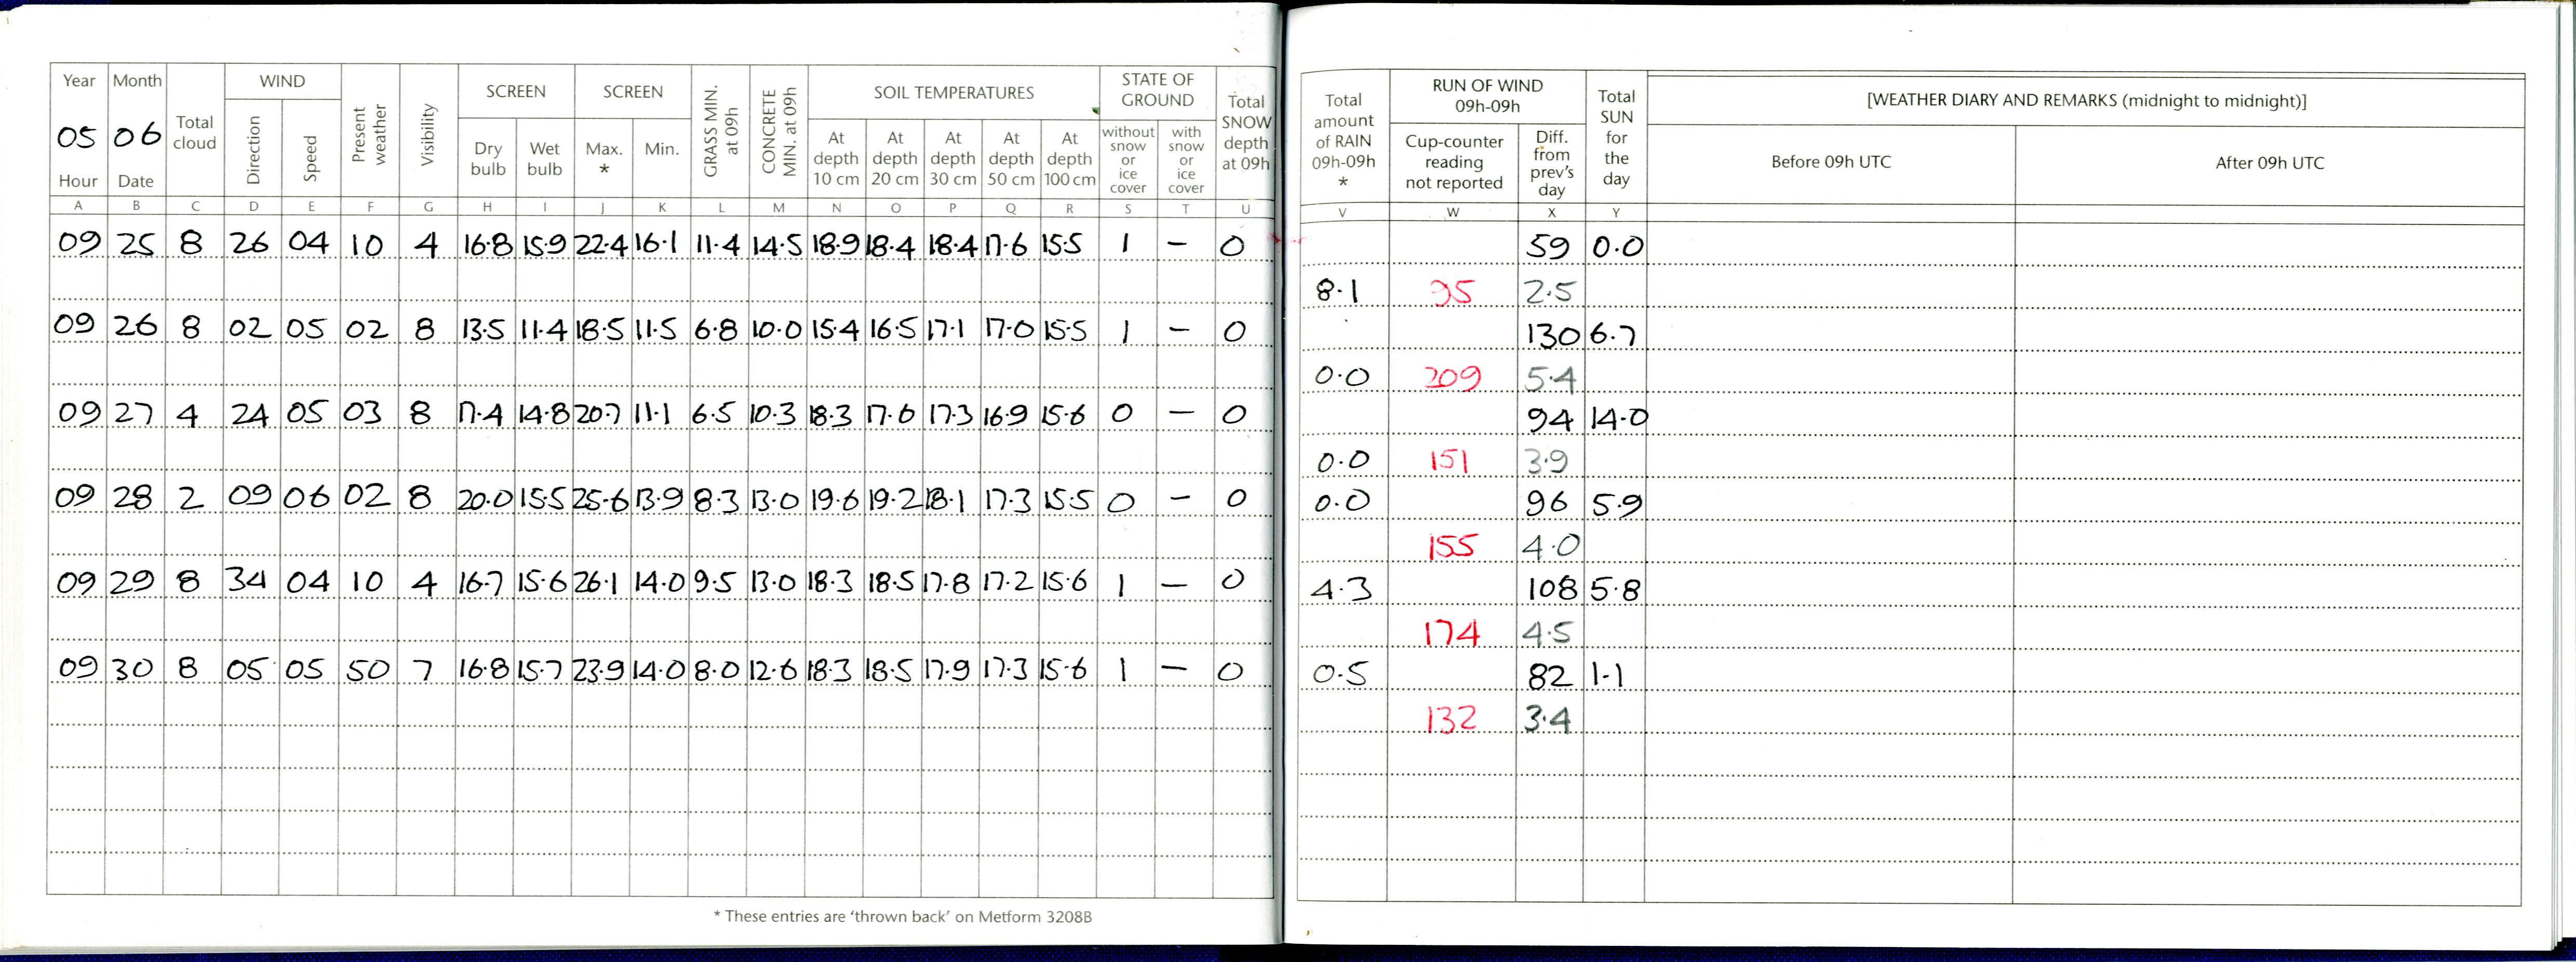 Year Month Total cloud WIND Present weather Visibility SCREEN SCREEN GRASS MIN. at 09h CONCRETE MIN. at 09h SOIL TEMPERATURES STATE OF GROUND Total SNOW depth at 09h
05 06 Direction Speed Dry bulb Wet bulb Max. * Min. At depth 10 cm At depth 20 cm At depth 30 cm At depth 50 cm At depth 100 cm without snow or ice cover with snow or ice cover
Hour Date
A B C D E F G H I J K L M N O P Q R S T U
09 25 8 26 04 10 4 16.8 15.9 22.4 16.1 11.4 14.5 18.9 18.4 18.4 17.6 15.5 1 — 0
09 26 8 02 05 02 8 13.5 11.4 18.5 11.5 6.8 10.0 15.4 16.5 17.1 17.0 15.5 1 — 0
09 27 4 24 05 03 8 17.4 14.8 20.7 11.1 6.5 10.3 18.3 17.6 17.3 16.9 15.6 0 — 0
09 28 2 09 06 02 8 20.0 15.5 25.6 13.9 8.3 13.0 19.6 19.2 18.1 17.3 15.5 0 — 0
09 29 8 34 04 10 4 16.7 15.6 26.1 14.0 9.5 13.0 18.3 18.5 17.8 17.2 15.6 1 — 0
09 30 8 05 05 50 7 16.8 15.7 23.9 14.0 8.0 12.6 18.3 18.5 17.9 17.3 15.6 1 — 0
* These entries are 'thrown back' on Metform 3208B
Total amount of RAIN 09h-09h * RUN OF WIND 09h-09h Total SUN for the day [WEATHER DIARY AND REMARKS (midnight to midnight)]
Cup-counter reading not reported Diff. from prev's day Before 09h UTC After 09h UTC
V W X Y
59 0.0
8.1 95 2.5
130 6.7
0.0 209 5.4
94 14.0
0.0 151 3.9
0.0 96 5.9
155 4.0
4.3 108 5.8
174 4.5
0.5 82 1.1
132 3.4